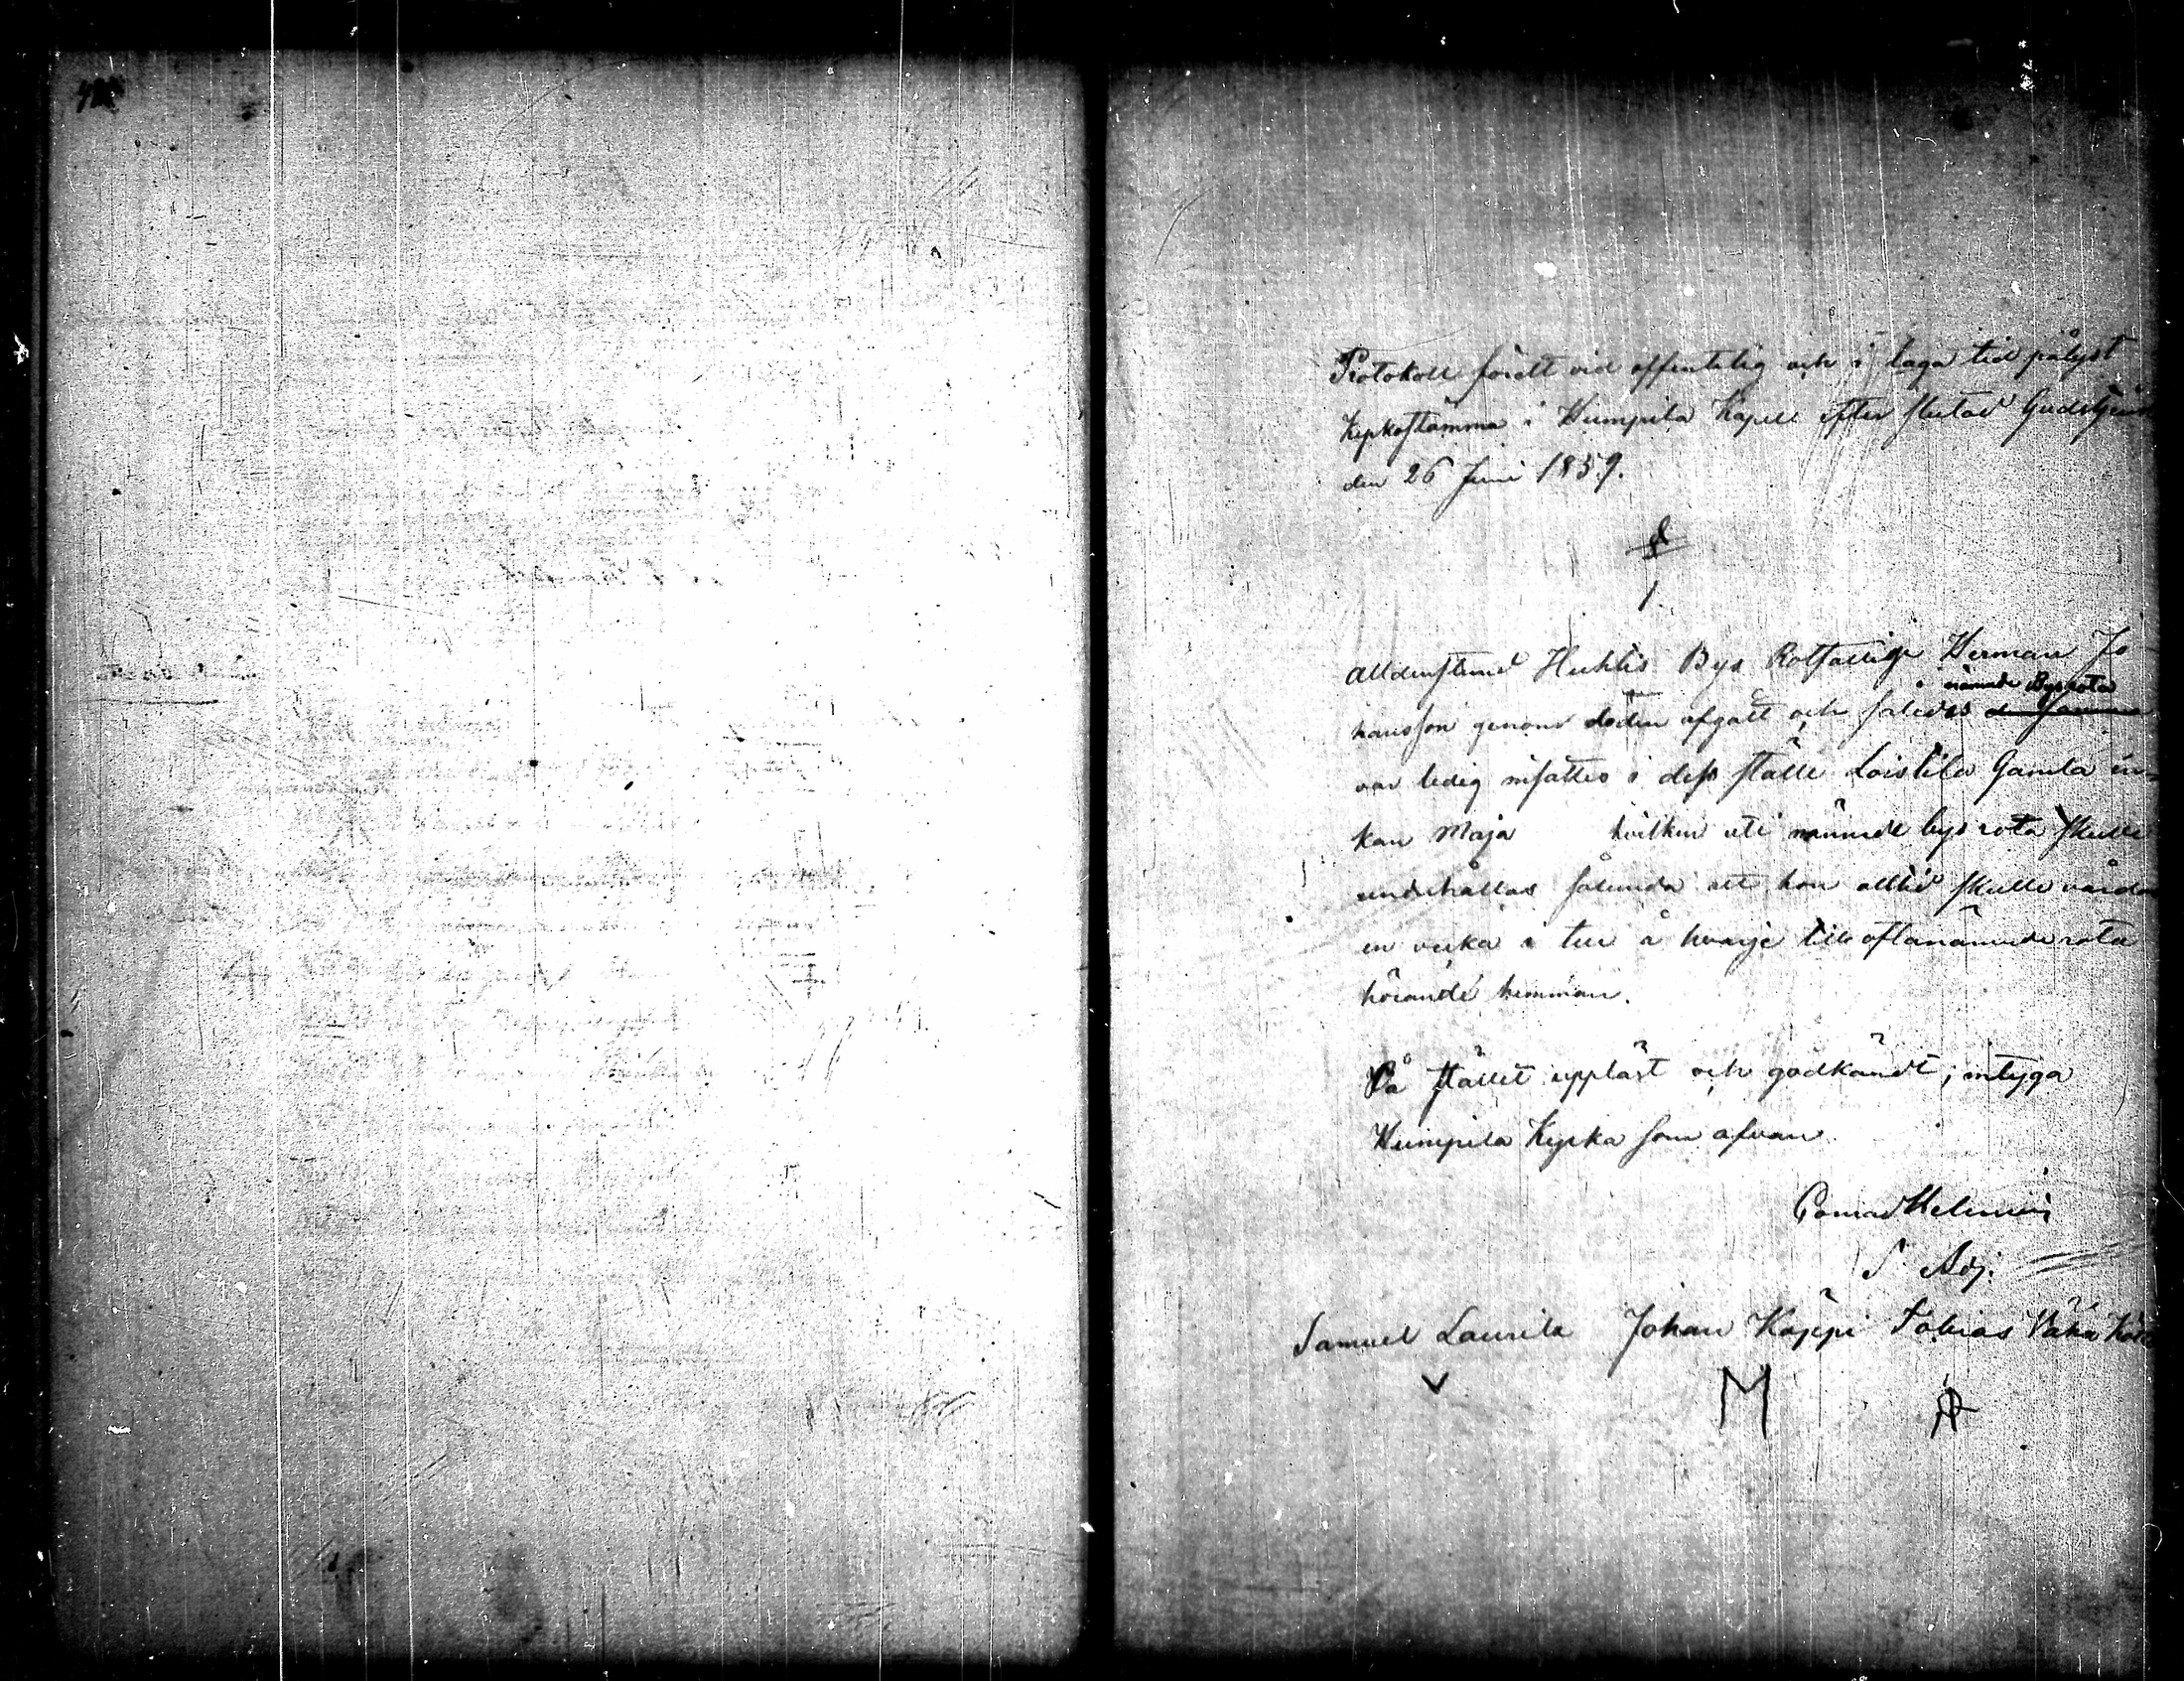 Protokoll fördt vid offentelig och i laga tid pålyst
Kyrkostämma i Humpila Kapell efter slutad Gudstjenst
den 26 Juni 1859.
§
1.
Alldenstund Huhtis Bys Rotfattige Herman Jo
nämnde Bys rota
hansson genom döden afgått och således
var ledig insattes i dess ställe Loistila Gamla en-
kan Maja hvilken uti nämnde bys rota skulle
underhållas sålunda att hon alltid skulle vårdas
en vecka i tur å hvarje till oftanämnde rota
hörande hemman.
På stället uppläst och godkändt; intyga
Humpila Kyrka som ofvan.
Conrad Helenius
S. Adj.
Samuel Laurila Johan Käppi Tobias Vähä